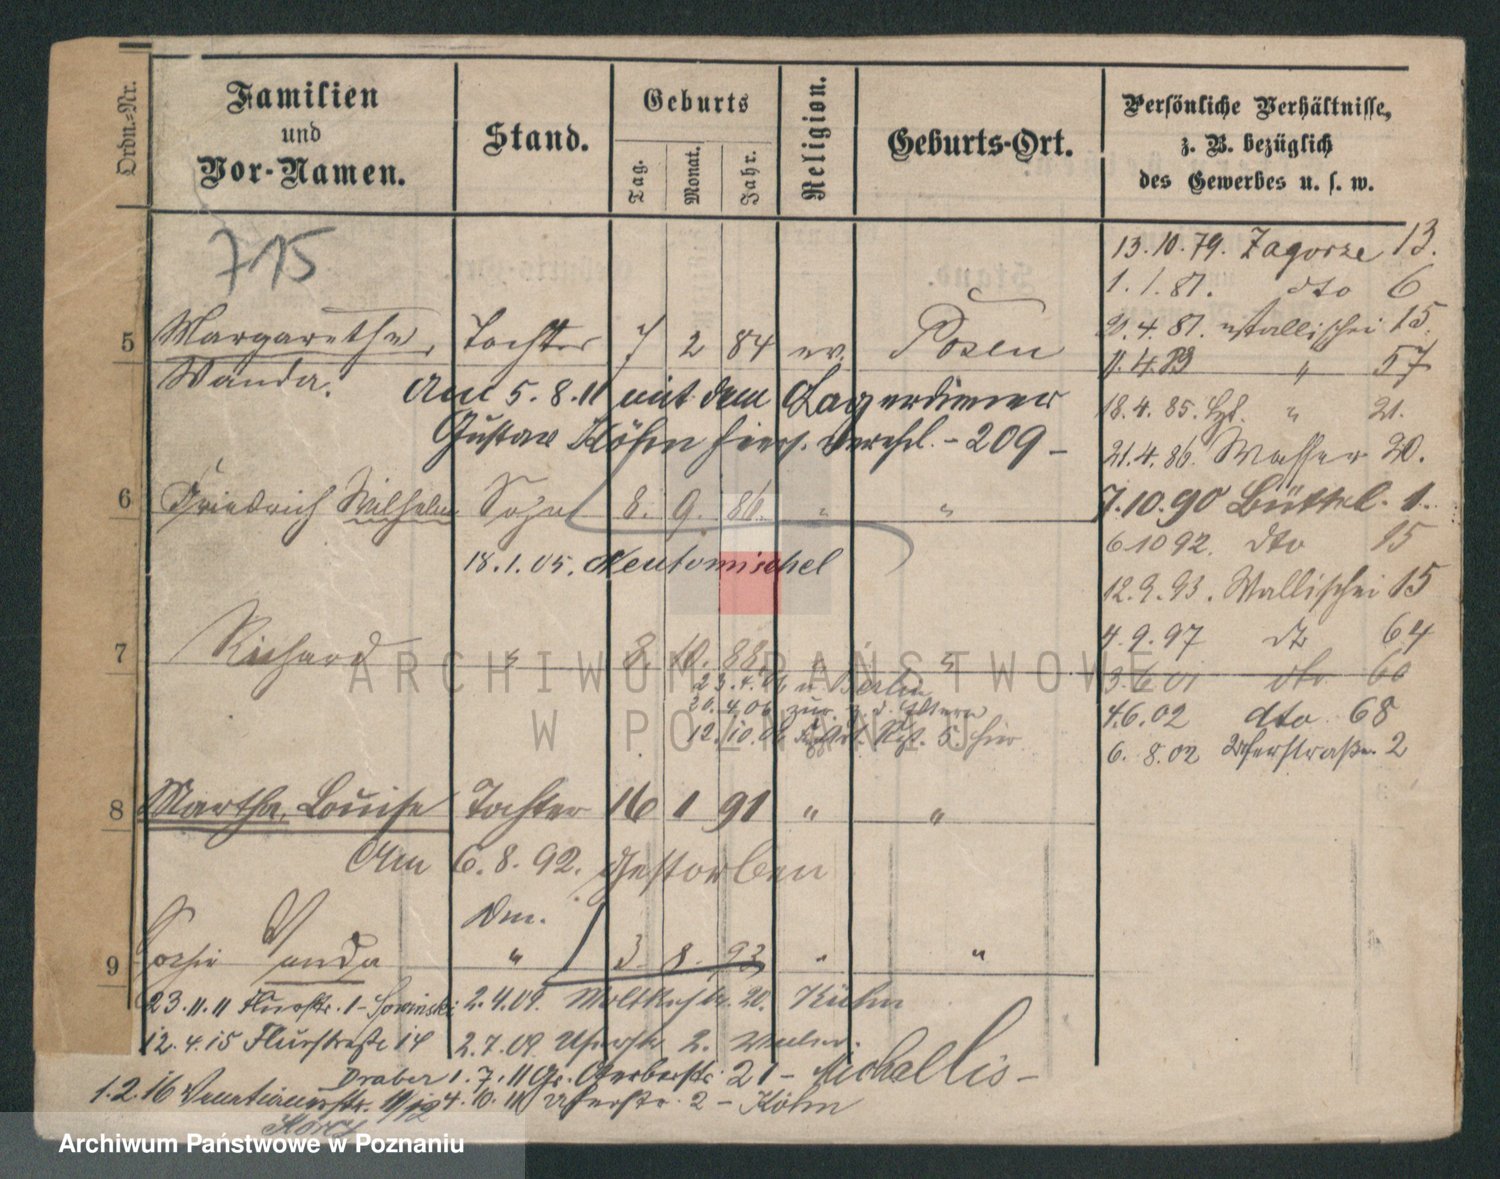 Ordn.-Nr.
Familien
und
Vor-Namen.
Stand.
Geburts
Tag.
Monat.
Jahr.
Religion.
Geburts-Ort.
Persönliche Verhältnisse,
z. B. bezüglich
des Gewerbes u. s. w.
715
13.10.79. Zagorze 13.
1.1.81. dto 6
2.4.81. Wallischei 15.
11.4.83 " 57
18.4.85. " 21.
21.4.86. Wasser 20.
7.10.90 Büttel. 1.
6 10 92. dto 15
12.9.93. Wallischei 15
4.9.97 dto 64
3 6 01 dto 60
4.6.02 dto 68
6.8.02 Uferstraße 2
5 Margarethe, Tochter 7 2 84 ev. Posen
Wanda. Am 5.8.11 mit dem Lagerdiener
Gustav Köhn hiers. verehel. - 209 -
6 Friedrich Wilhelm Sohn 8. 9. 86. " "
18.1.05. Neutomischel
7 Richard " 8. 10. 88. " "
23.4.06 n. Berlin
30.4.06 zur. z. d. Eltern
12.10.06 Art. Rgt. 5 hier
8 Martha, Louise Tochter 16 1 91 " "
Am 6.8.92. gestorben
9 Sophie Wanda " 3. 8. 93 " "
23.11.11 Flurstr. 1 - Sowinski 2.4.09. Moltkestr. 20. Kühn
12.4.15 Flurstraße 14 2.7.09. Uferstr. 2.
Draber 1.7.11 Gr. Gerberstr. 21 - Michallis -
1.2.16 Venetianerstr. 11/12 4.10.11 Uferstr. 2 - Köhn
ARCHIWUM PAŃSTWOWE
W POZNANIU
Archiwum Państwowe w Poznaniu